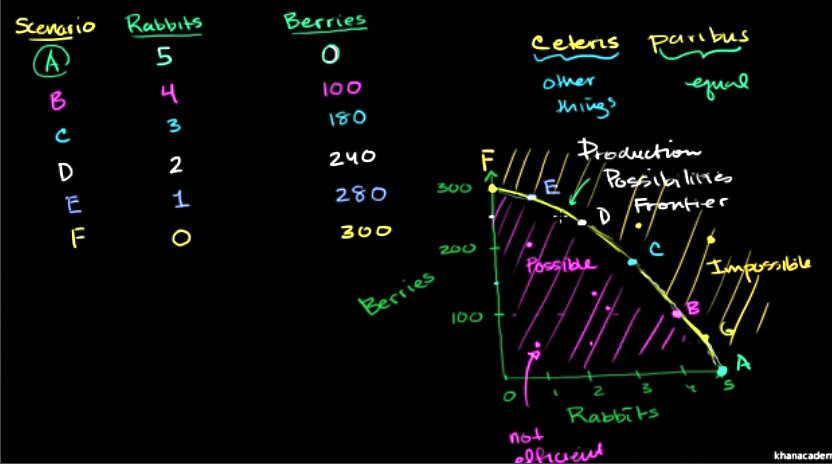 Scenario Rabbits Berries
A 5 0
B 4 100
C 3 180
D 2 240
E 1 280
F 0 300
Ceteris paribus
other equal
things
Production
Possibilities
Frontier
F
E
D
C
B
G
A
300
200
100
Berries
Possible
Impossible
0 1 2 3 4 5
Rabbits
not
efficient
khanacadem